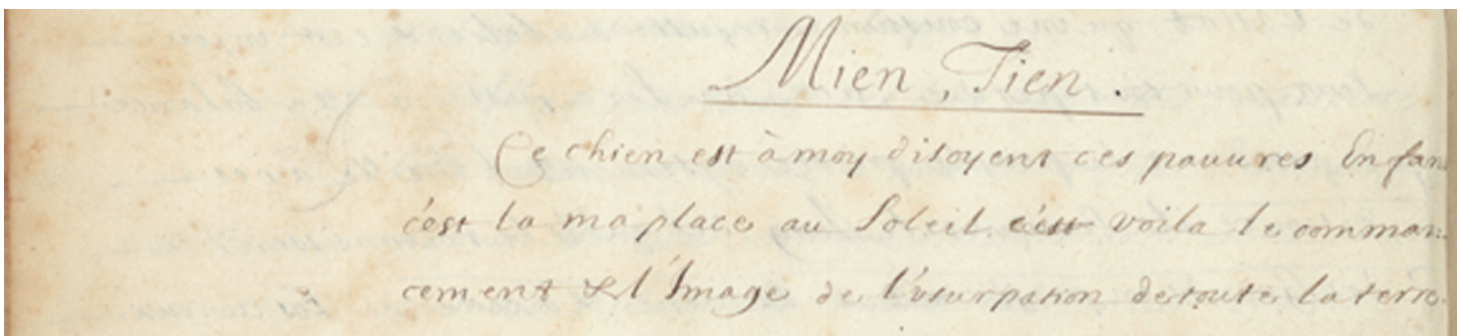 Mien, Tien.
Ce chien est à moy disoyent ces pauures Enfan
c'est la ma place au Soleil. c'est voila le comman
cement & l'Image de l'vsurpation de toute la terre.